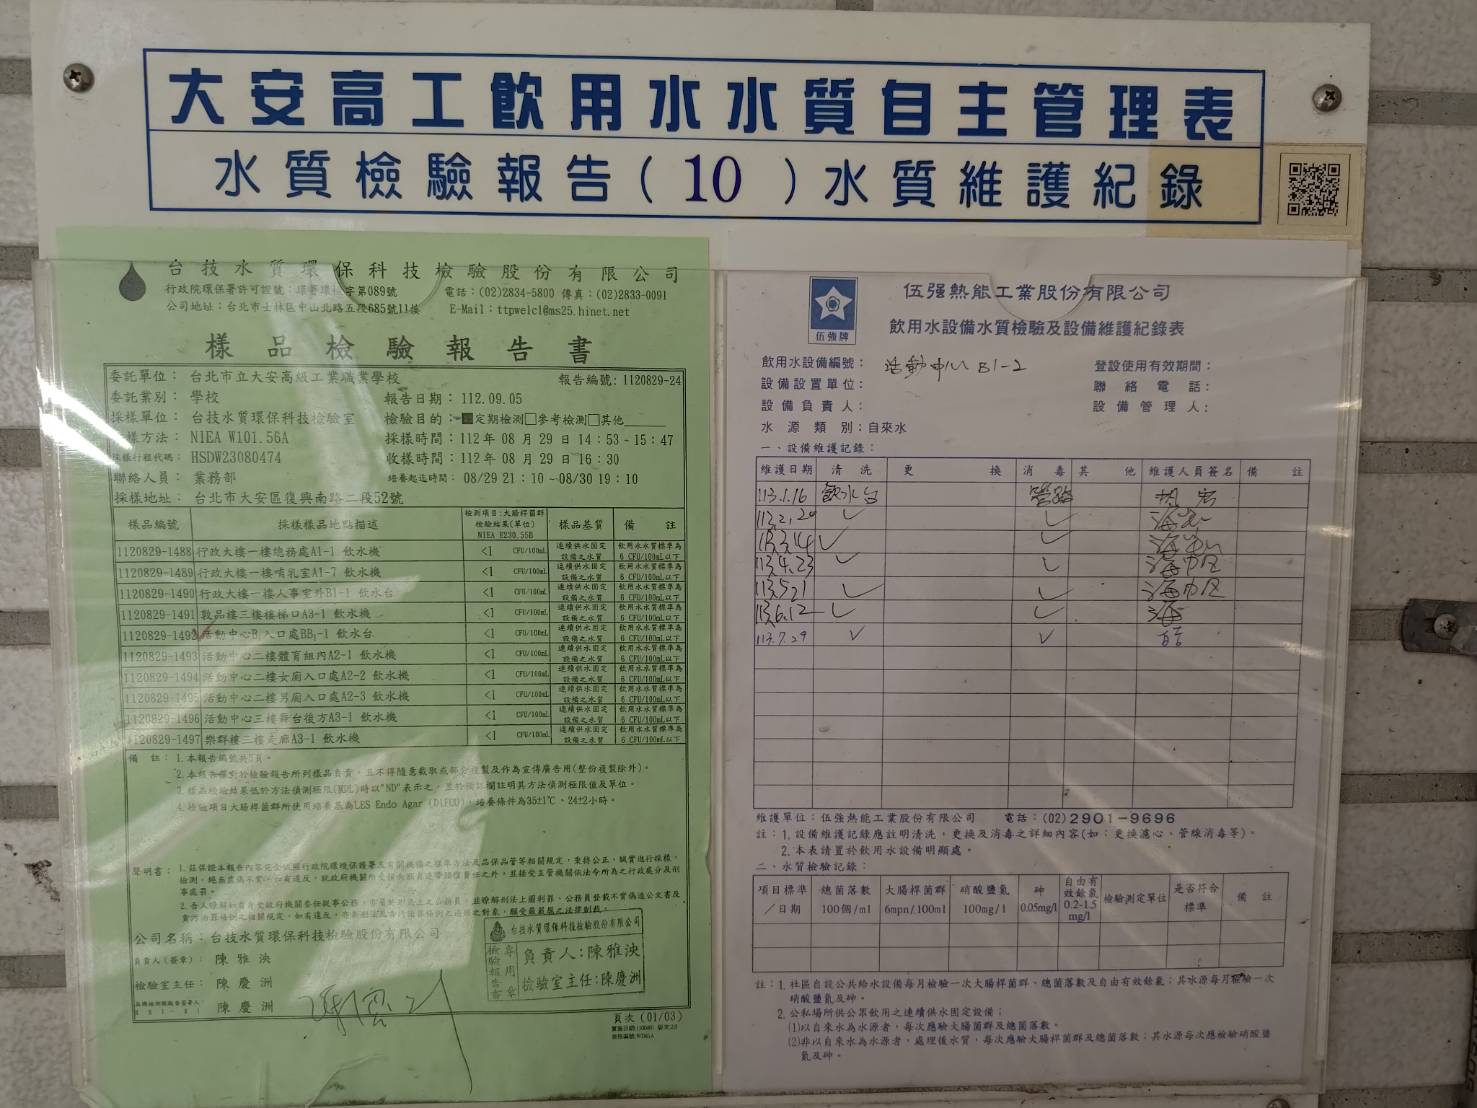 大安高工飲用水水質自主管理表
水質檢驗報告(10)水質維護紀錄
台技水質環保科技檢驗股份有限公司
行政院環保署許可證號：環署環檢字第089號 電話：(02)2834-5800 傳真：(02)2833-0091
公司地址：台北市士林區中山北路五段685號11樓 E-Mail：ttpwelcl@ms25.hinet.net
樣品檢驗報告書
委託單位：台北市立大安高級工業職業學校 報告編號：1120829-24
委託業別：學校 報告日期：112.09.05
採樣單位：台技水質環保科技檢驗室 檢驗目的：■定期檢測□參考檢測□其他
採樣方法：NIEA W101.56A 採樣時間：112年08月29日14：53-15：47
採樣行程代碼：HSDW23080474 收樣時間：112年08月29日16：30
聯絡人員：業務部 培養起迄時間：08/29 21：10～08/30 19：10
採樣地址：台北市大安區復興南路二段52號
樣品編號 採樣樣品地點描述 檢測項目：大腸桿菌群 檢驗結果(單位) NIEA E230.55B 樣品基質 備註
1120829-1488 行政大樓一樓總務處A1-1 飲水機 <1 CFU/100mL 連續供水固定設備之水質 飲用水水質標準為6 CFU/100mL以下
1120829-1489 行政大樓一樓哺乳室A1-7 飲水機 <1 CFU/100mL 連續供水固定設備之水質 飲用水水質標準為6 CFU/100mL以下
1120829-1490 行政大樓一樓人事室外B1-1 飲水台 <1 CFU/100mL 連續供水固定設備之水質 飲用水水質標準為6 CFU/100mL以下
1120829-1491 敦品樓三樓樓梯口A3-1 飲水機 <1 CFU/100mL 連續供水固定設備之水質 飲用水水質標準為6 CFU/100mL以下
1120829-1492 活動中心B1入口處BB1-1 飲水台 <1 CFU/100mL 連續供水固定設備之水質 飲用水水質標準為6 CFU/100mL以下
1120829-1493 活動中心二樓體育組內A2-1 飲水機 <1 CFU/100mL 連續供水固定設備之水質 飲用水水質標準為6 CFU/100mL以下
1120829-1494 活動中心二樓女廁入口處A2-2 飲水機 <1 CFU/100mL 連續供水固定設備之水質 飲用水水質標準為6 CFU/100mL以下
1120829-1495 活動中心二樓男廁入口處A2-3 飲水機 <1 CFU/100mL 連續供水固定設備之水質 飲用水水質標準為6 CFU/100mL以下
1120829-1496 活動中心三樓舞台後方A3-1 飲水機 <1 CFU/100mL 連續供水固定設備之水質 飲用水水質標準為6 CFU/100mL以下
1120829-1497 樂群樓三樓走廊A3-1 飲水機 <1 CFU/100mL 連續供水固定設備之水質 飲用水水質標準為6 CFU/100mL以下
備註：1.本報告編號共3頁。
2.本報告僅對於檢驗報告所列樣品負責，且不得隨意截取或部分複製及作為宣傳廣告用(整份複製除外)。
3.樣品檢驗結果低於方法偵測極限(MDL)時以"ND"表示之，並於備註欄註明其方法偵測極限值及單位。
4.檢驗項目大腸桿菌群所使用培養基為LES Endo Agar (DIFCO)，培養條件為35±1℃、24±2小時。
聲明書：1.茲保證本報告內容完全依照行政院環境保護署及有關機關之標準方法及品保品管等相關規定，秉持公正、誠實進行採樣、
事處罰。
公司名稱：台技水質環保科技檢驗股份有限公司
負責人(簽章)：陳雅泱
檢驗室主任：陳慶洲
陳慶洲
台技水質環保科技檢驗股份有限公司
檢驗報告書專用章
負責人：陳雅泱
檢驗室主任：陳慶洲
頁次(01/03)
伍強牌
伍強熱能工業股份有限公司
飲用水設備水質檢驗及設備維護紀錄表
飲用水設備編號：活動中心 B1-2 登設使用有效期間：
設備設置單位： 聯絡電話：
設備負責人： 設備管理人：
水源類別：自來水
一、設備維護記錄：
維護日期 清洗 更換 消毒 其他 維護人員簽名 備註
113.1.16 飲水台 管路
113.2.20 ✓ ✓
113.3.14 ✓ ✓
113.4.23 ✓ ✓
113.5.21 ✓ ✓
113.6.12 ✓ ✓
113.7.29 ✓ ✓
維護單位：伍強熱能工業股份有限公司 電話：(02)2901-9696
註：1.設備維護記錄應註明清洗、更換及消毒之詳細內容(如：更換濾心、管線消毒等)。
2.本表請置於飲用水設備明顯處。
二、水質檢驗記錄：
項目標準／日期 總菌落數 100個/ml 大腸桿菌群 6mpn/100ml 硝酸鹽氮 100mg/l 砷 0.05mg/l 自由有效餘氯 0.2-1.5 mg/l 檢驗測定單位 是否符合標準 備註
註：1.社區自設公共給水設備每月檢驗一次大腸桿菌群、總菌落數及自由有效餘氯；其水源每月檢驗一次
硝酸鹽氮及砷。
2.公私場所供公眾飲用之連續供水固定設備；
(1)以自來水為水源者，每次應驗大腸菌群及總菌落數。
(2)非以自來水為水源者，處理後水質，每次應驗大腸桿菌群及總菌落數；其水源每次應檢驗硝酸鹽
氮及砷。